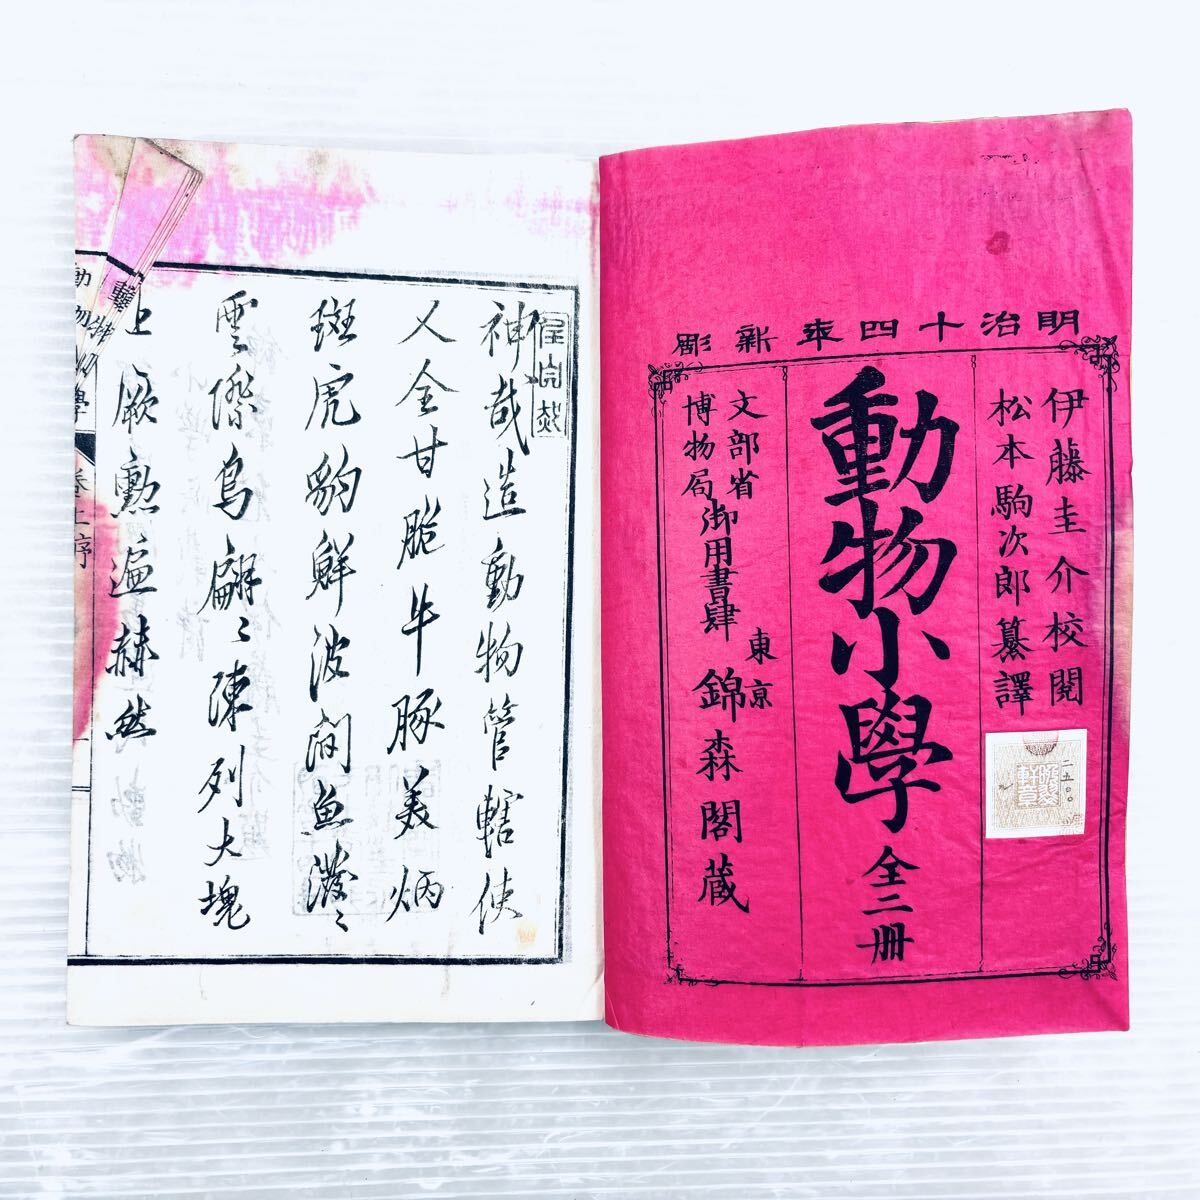 明治十四年新彫
伊藤圭介校閲
松本駒次郎纂譯
動物小學 全二冊
文部省
博物局
御用書肆
東京
錦森閣蔵
二五〇〇
神哉造動物管轄使
人全甘脆牛豚美炳
斑虎豹鮮波間魚潑〻
雲際鳥翩〻陳列大塊
上厥勲遍赫然
動物小學
巻上序